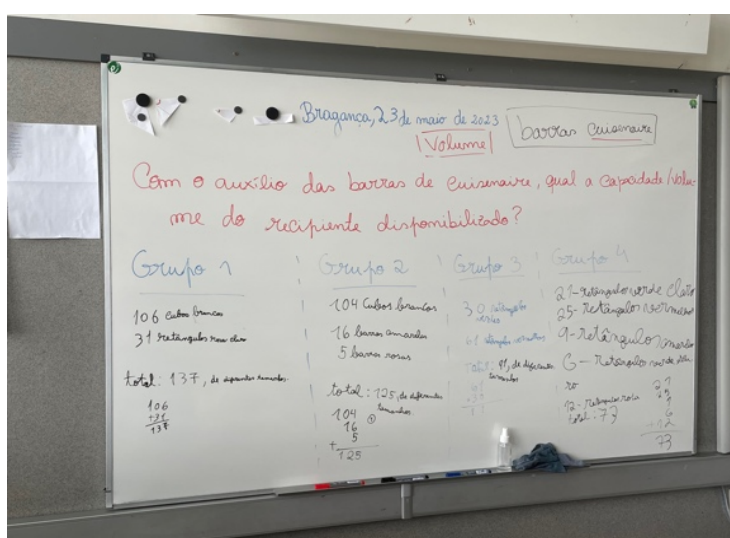 Bragança, 23 de maio de 2023
Volume
barras Cuisenaire
Com o auxílio das barras de Cuisenaire, qual a capacidade/volu-
me do recipiente disponibilizado?
Grupo 1
106 cubos brancos
31 retângulos
total: 137, de diferentes tamanhos.
106
+31
137
Grupo 2
104 cubos brancos
16 barras amarelas
5 barras rosas
total: 125, de diferentes
tamanhos
104
16
+ 5
125
Grupo 3
30 retângulos
verdes
61 retângulos vermelhos
total: 91, de diferentes
tamanhos
Grupo 4
21-retângulos verde claro
25-retângulos vermelhos
9-retângulos
6-retângulo verde
ro
12-retângulos rosa
total: 73
21
6
+12
73